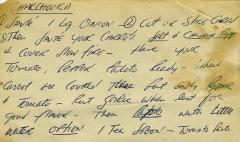 ① Sauté 1 Lg Onion ② Cut or Slice Carrots
③ Then Sauté your Carrots
& Cover Slow fire - Have your
Tomato, Pepper Potato Ready - when
Carrot are cooked Then Put
& Tomato - Put Garlic when last for
good flavor - Then with Little
water OPTION 1 Tea Spoon - Tomato Paste